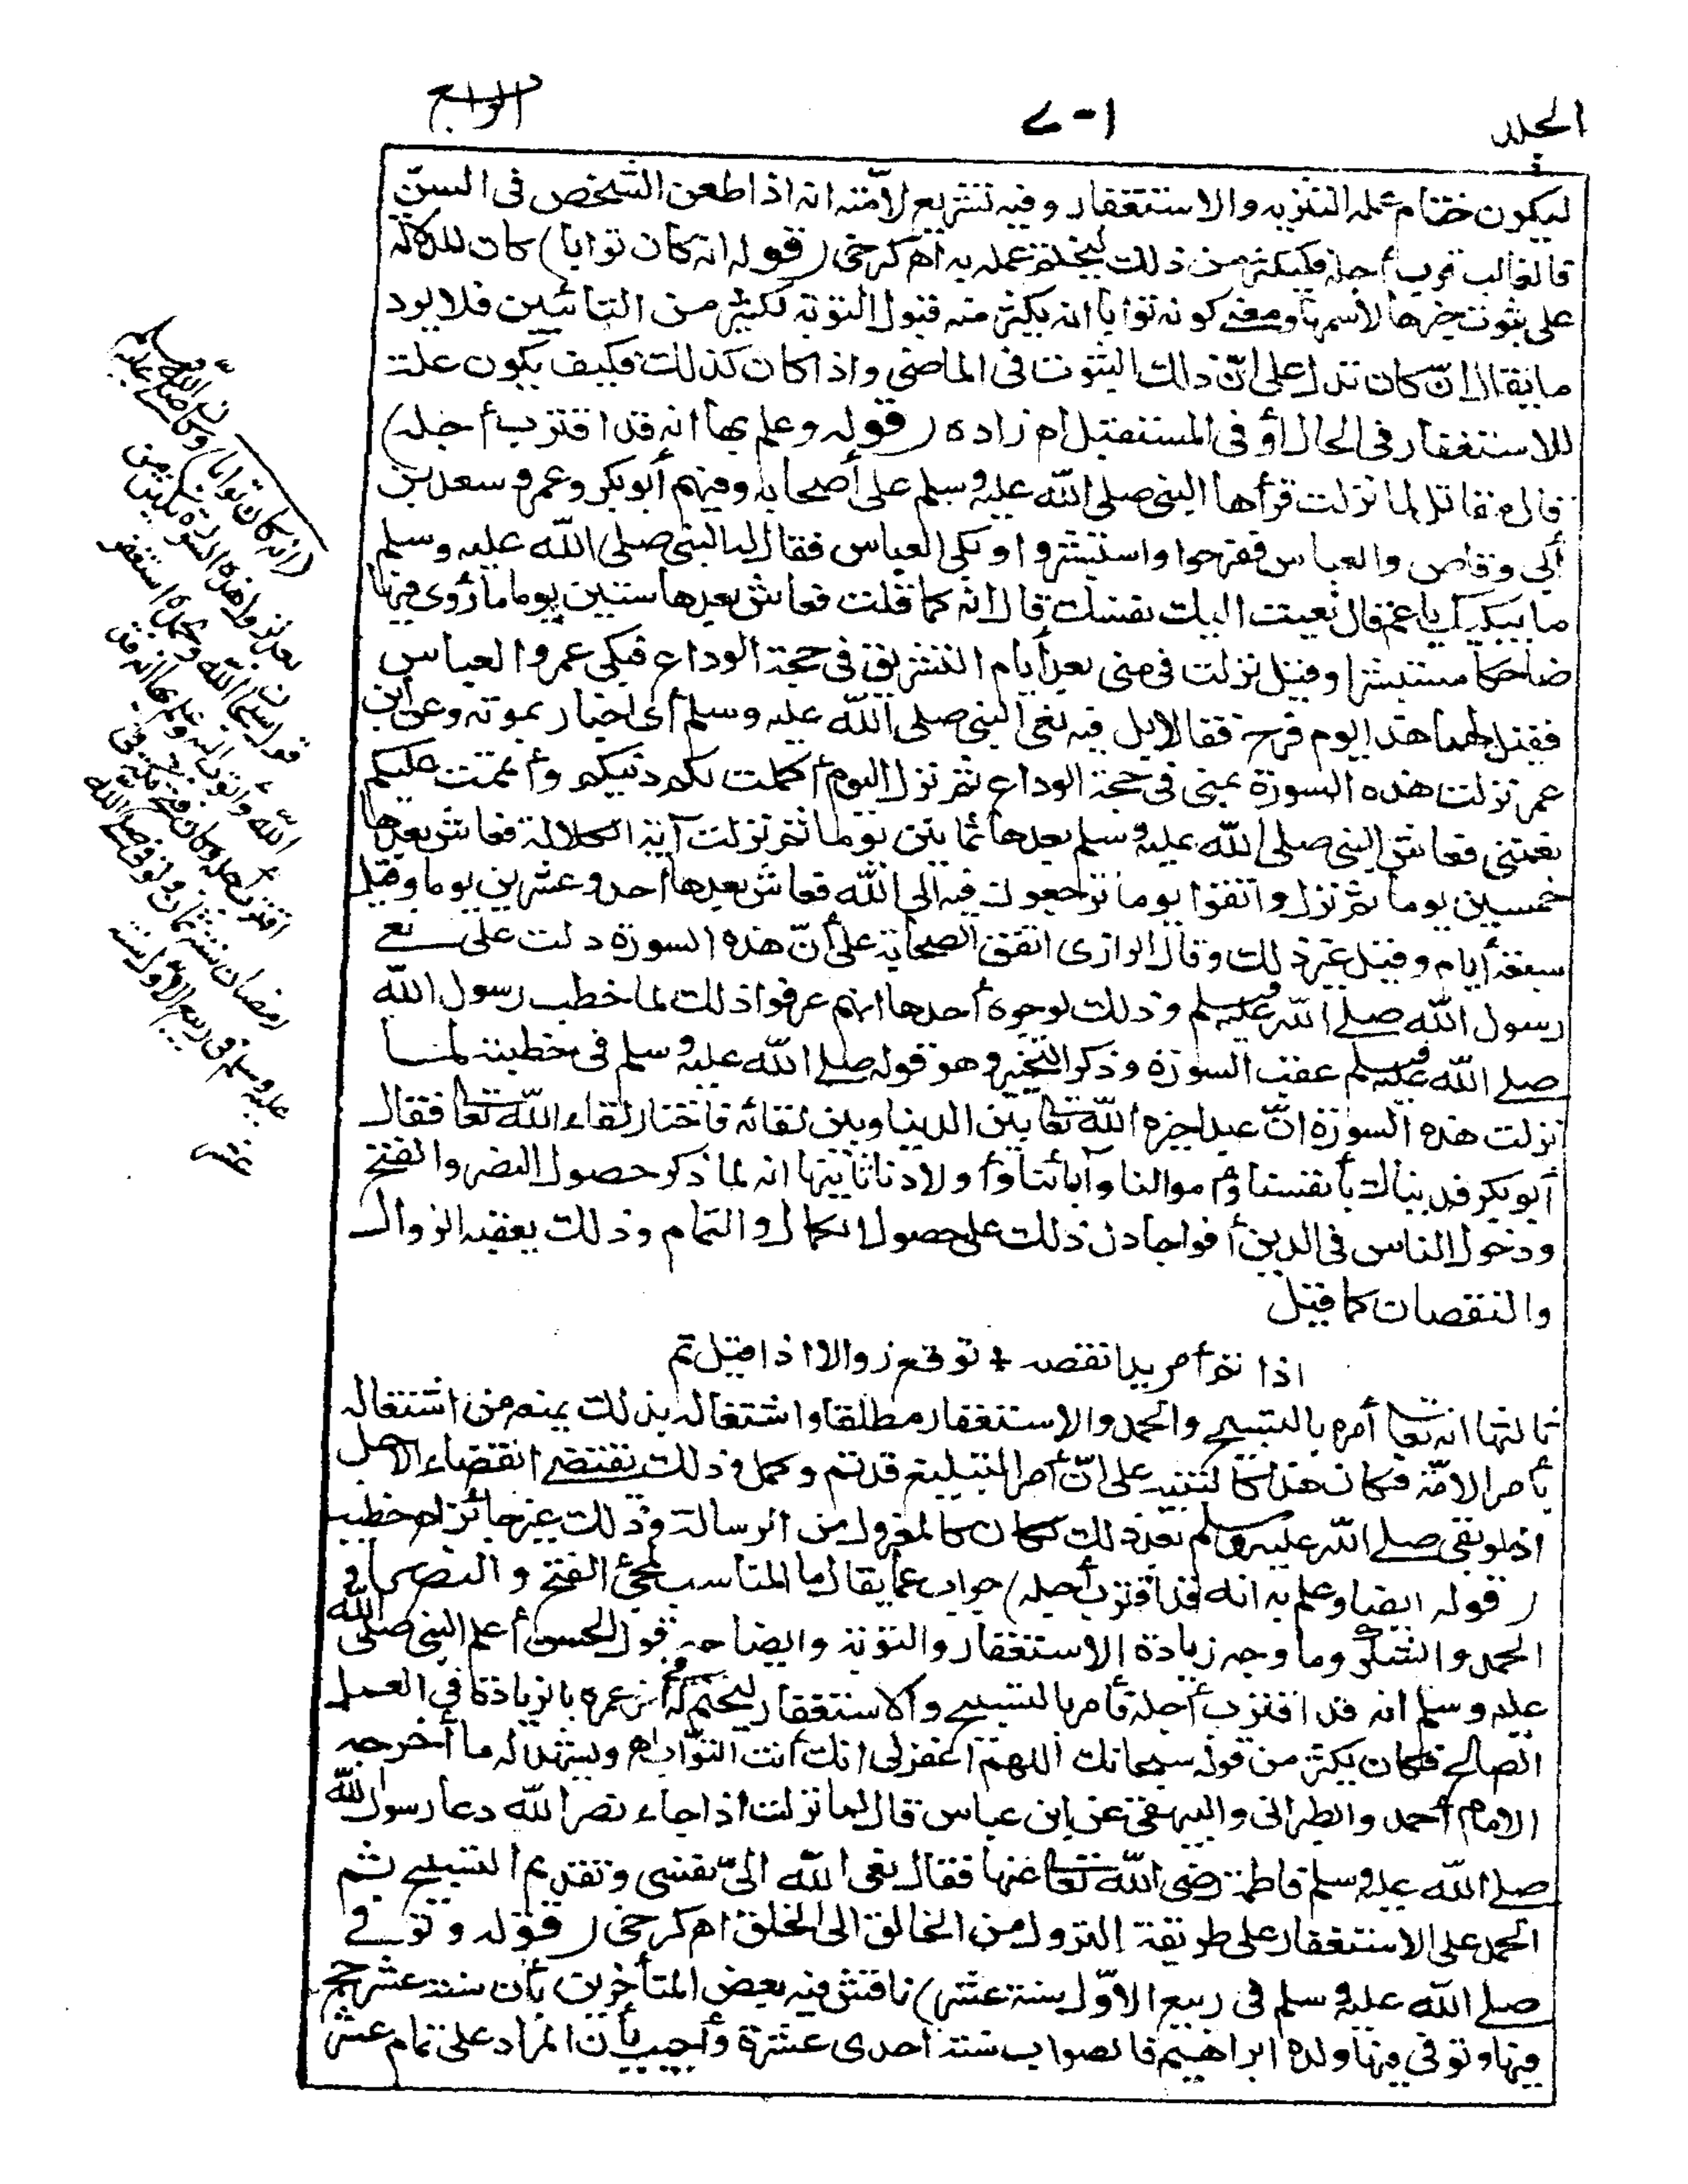 المجلد
الرابع
ليكون ختام عمله التنزيه والاستغفار وفيه تشريع لأمّته انه اذا طعن الشخص فى السنّ
فالغالب قرب أجله فليكثر من ذلك ليختم عمله به اه كرخى (قوله انه كان توابا) كان للدلالة
على ثبوت خبرها لاسمها ومعنى كونه توابا انه يكثر منه قبول التوبة لكثير من التائبين فلا يرد
ما يقال انّ كان تدل على انّ ذلك الثبوت فى الماضى واذا كان كذلك فكيف يكون علة
للاستغفار فى الحال أو فى المستقبل اه زاده (قوله وعلم بها انه قد اقترب أجله)
قال مقاتل لما نزلت قرأها النبى صلى الله عليه وسلم على أصحابه وفيهم أبو بكر وعمر وسعد بن
أبى وقاص والعباس ففرحوا واستبشروا وبكى العباس فقال له النبى صلى الله عليه وسلم
ما يبكيك يا عم قال نعيت اليك نفسك قال انه كما قلت فعاش بعدها ستين يوما ما رؤى فيها
ضاحكا مستبشرا وقيل نزلت فى منى بعد أيام التشريق فى حجة الوداع فبكى عمر والعباس
فقيل لهما هذا يوم فرح فقالا لا بل فيه نعى النبى صلى الله عليه وسلم أى اخبار بموته وعن ابن
عمر نزلت هذه السورة بمنى فى حجة الوداع ثم نزل اليوم أكملت لكم دينكم وأتممت عليكم
نعمتى فعاش النبى صلى الله عليه وسلم بعدها ثمانين يوما ثم نزلت آية الكلالة فعاش بعدها
خمسين يوما ثم نزل واتقوا يوما ترجعون فيه الى الله فعاش بعدها أحد وعشرين يوما وقيل
سبعة أيام وقيل غير ذلك وقال الرازى اتفق الصحابة على أنّ هذه السورة دلت على نعى
رسول الله صلى الله عليه وسلم وذلك لوجوه أحدها انهم عرفوا ذلك لما خطب رسول الله
صلى الله عليه وسلم عقب السورة وذكر التخيير وهو قوله صلى الله عليه وسلم فى خطبته لما
نزلت هذه السورة انّ عبدا خيره الله تعالى بين الدنيا وبين لقائه فاختار لقاء الله تعالى فقال
أبو بكر فديناك بأنفسنا وأموالنا وآبائنا وأولادنا ثانيها انه لما ذكر حصول النصر والفتح
ودخول الناس فى الدين أفواجا دل ذلك على حصول الكمال والتمام وذلك يعقبه الزوال
والنقصان كما قيل
اذا تم أمر بدا نقصه * توقع زوالا اذا قيل تم
ثالثها انه تعالى أمره بالتسبيح والحمد والاستغفار مطلقا واشتغاله بذلك يمنعه من اشتغاله
بأمر الامّة فكان هذا كالتنبيه على انّ أمر التبليغ قد تم وكمل وذلك يقتضى انقضاء الاجل
اذ لو بقى صلى الله عليه وسلم بعد ذلك لكان كالمعزول من الرسالة وذلك غير جائز اه خطيب
(قوله ايضا وعلم به انه قد اقترب أجله) جواب عما يقال ما المناسب لمجئ الفتح والنصر
الحمد والشكر وما وجه زيادة الاستغفار والتوبة وايضاحه قول الحسن أعلم النبى صلى الله
عليه وسلم انه قد اقترب أجله فأمر بالتسبيح والاستغفار ليختم له آخر عمره بالزيادة فى العمل
الصالح فكان يكثر من قوله سبحانك اللهمّ اغفر لى انك أنت التوّاب اه ويشهد له ما أخرجه
الامام أحمد والطبرانى والبيهقى عن ابن عباس قال لما نزلت اذا جاء نصر الله دعا رسول الله
صلى الله عليه وسلم فاطمة رضى الله تعالى عنها فقال نعى الله الىّ نفسى وتقديم التسبيح ثم
الحمد على الاستغفار على طريقة النزول من الخالق الى الخلق اه كرخى (قوله وتوفى
صلى الله عليه وسلم فى ربيع الاوّل سنة عشر) ناقش فيه بعض المتأخرين بأن سنة عشر حج
فيها وتوفى فيها ولده ابراهيم فالصواب سنة احدى عشرة وأجيب بأن المراد على تمام عشر
(انه كان توابا) وكان صلى الله عليه وسلم
بعد نزول هذه السورة يكثر من
قول سبحان الله وبحمده استغفر
الله وأتوب اليه وعلم بها أنه قد
اقترب أجله وكان فتح مكة فى
رمضان سنة ثمان وتوفى صلى الله
عليه وسلم فى ربيع الاوّل سنة
عشر